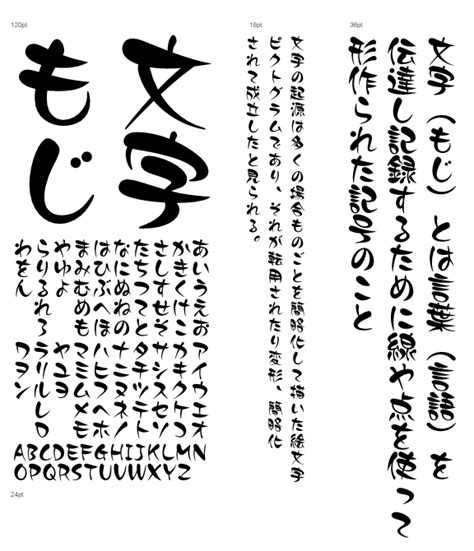 120pt
文字
もじ
あいうえお アイウエオ
かきくけこ カキクケコ
さしすせそ サシスセソ
たちつてと タチツテト
なにぬねの ナニヌネノ
はひふへほ ハヒフヘホ
まみむめも マミムメモ
やゆよ ヤユヨ
らりるれろ ラリルレロ
わをん ワヲン
ABCDEFGHIJKLMN
OPQRSTUVWXYZ
24pt
18pt
文字の起源は多くの場合ものごとを簡略化して描いた絵文字
ピクトグラムであり、それが転用されたり変形、簡略化
されて成立したと見られる。
36pt
文字（もじ）とは言葉（言語）を
伝達し記録するために線や点を使って
形作られた記号のこと